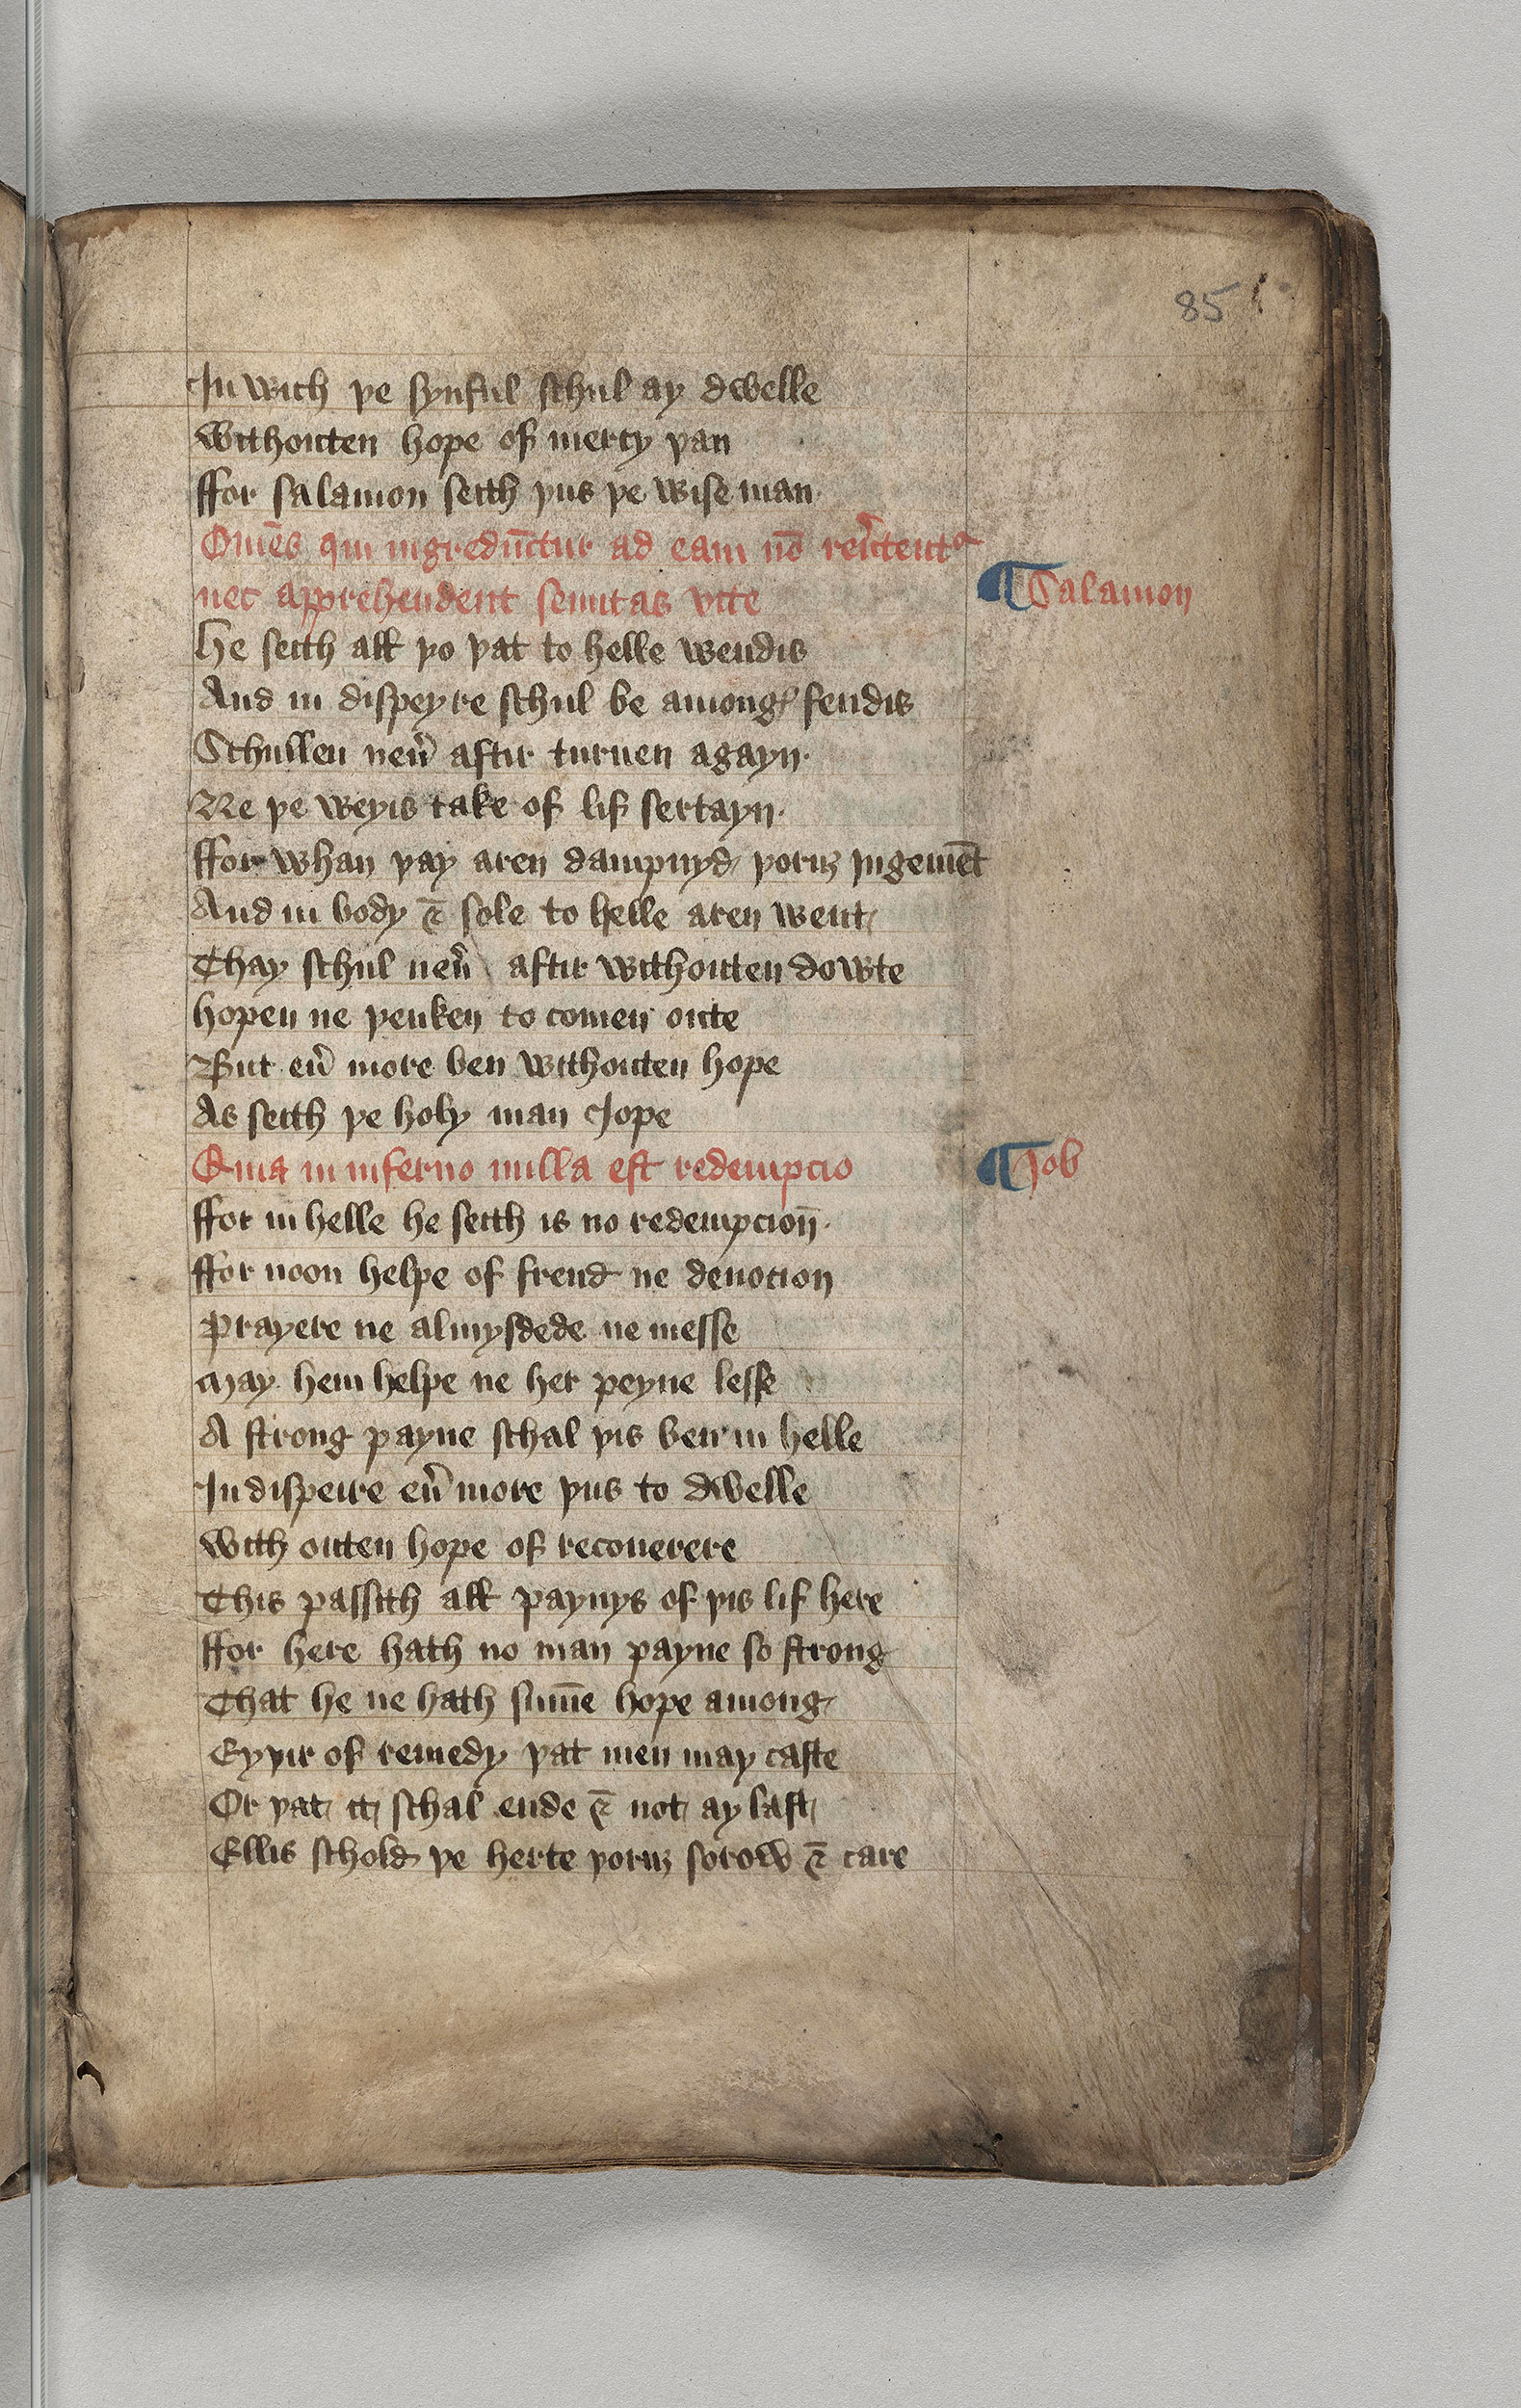 85
In wich þe synful schul ay dwelle
withouten hope of mercy þan
ffor salamon seith þus þe wise man
Om̄es qui ingrediu̅tur ad eam no̅ reu̾tent᷑
nec apprehendent semitas vite
¶ Salamon
He seith all þo þat to helle wendis
And in dispeyre schul be among fendis
Schullen neu̾ aftir turnen agayn·
Ne þe weyis take of lif sertayn·
ffor whan þay aren dampnyd þoruȝ jugeme̅t
And in body & sole to helle aren went
Thay schul neu̾ aftir withouten dowte
hopen ne þenken to comen oute
But eu̾ more ben withouten hope
As seith þe holy man Jope
Quia in inferno nulla est redempcio
¶ Job
ffor in helle he seith is no redempcion̅·
ffor noon helpe of frend ne deuocion
Prayere ne almysdede ne messe
May hem helpe ne her peyne lesse
A strong payne schal þis ben in helle
In dispeire eu̾ more þus to dwelle
with outen hope of recouerere
This passith all paynys of þis lif here
ffor here hath no man payne so strong
That he ne hath sum̅e hope among
Eyþir of remedy þat men may caste
Or þat it schal ende & not ay last
Ellis schold þe herte þoruȝ sorow & care